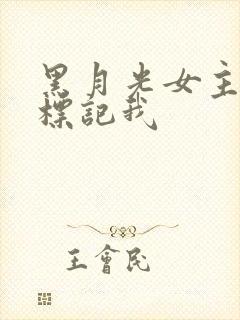 黑月光女主
標記我
王會民